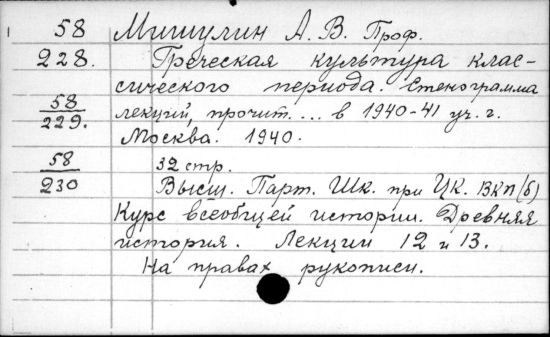 58 Мишулин А. В. Проф.
228. Греческая культура клас-
сического периода. Стенограмма
58 лекций, прочит.... в 1940-41 уч. г.
229. Москва. 1940.
58 32 стр.
230 Высш. Парт. Шк. при ЦК. ВКП/б)
Курс всеобщей истории. Древняя
история. Лекции 12 и 13.
На правах рукописи.